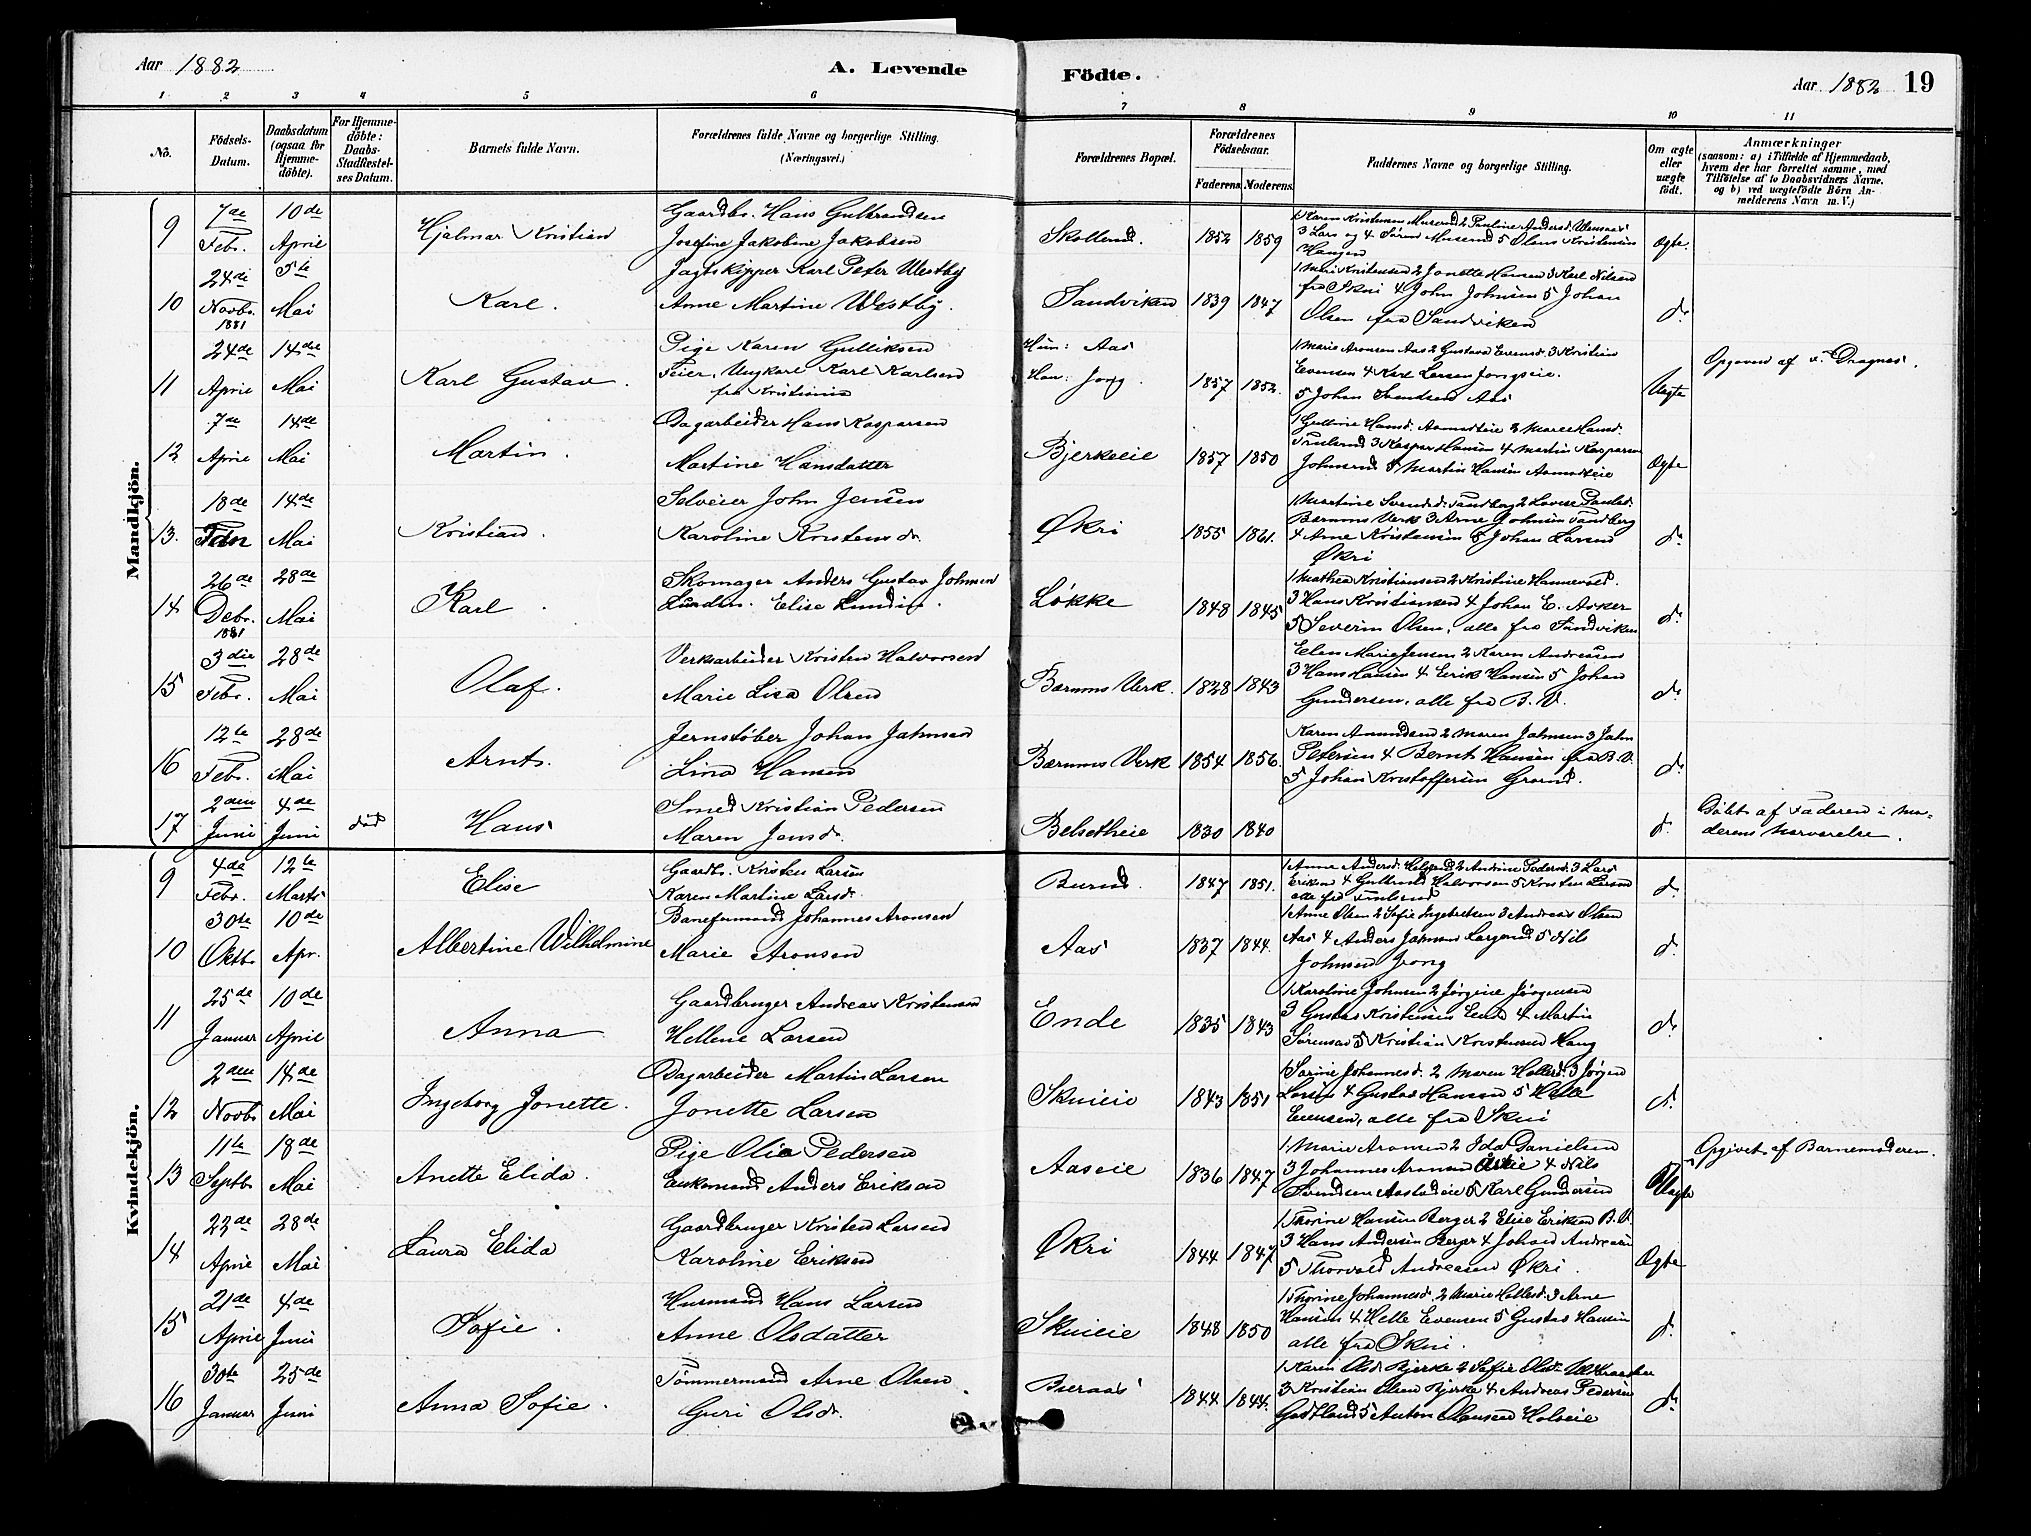 Aar 1882
A. Levende
Födte.
Aar 1882 19
1 2 3 4 5 6 7 8 9 10 11
No.
Födsels-Datum.
Daabsdatum (ogsaa for Hjemme-döbte).
For Hjemme-döbte: Daabs-Stadfæstel-ses Datum.
Barnets fulde Navn.
Forældrenes fulde Navne og borgerlige Stilling.
(Næringsvei.)
Forældrenes Bopæl.
Forældrenes Födselsaar.
Faderens Moderens
Faddernes Navne og borgerlige Stilling.
Om ægte eller uægte födt.
Anmærkninger
(saasom: a) i Tilfælde af Hjemmedaab, hvem der har forrettet samme, med Tilföielse af to Daabsvidners Navne, og b) ved uægtefödte Börn An-melderens Navn m. V.)
Mandkjön.
9 7de Febr. 10de April Hjalmar Kristian
Gaardbr. Hans Gulbrandsen
Josefine Jakobine Jakobsen
1852 1859
Hangen
Ægte.
10 24de Novbr. 1881 5te Mai Karl.
Jagtskipper Karl Peter Westby
Anne Martine Westby.
Sandviken 1839 1847
1 Mari Kristensen 2 Jonette Hansen 3 Karl Nilsen
fra Skui 4 John Johnsen 5 Johan
Olsen fra Sandviken
do
11 24de April 14de Mai Karl Gustav.
Pige Karen Gulliksen
Feier, Ungkarl Karl Karlsen
fra Kristiania
Hun: Aas
Han: Jong. 1857 1852.
1 Marie Aronsen Aas 2 Gustava Evensd. 3 Kristian
Evensen 4 Karl Larsen Jongseie.
5 Johan Svendsen Aas
Uægte
Opgiven af
12 7de April 14de Mai Martin.
Dagarbeider Hans Kaspersen
Martine Hansdatter
Bjerkeeie 1857 1850
3 Kaspar Hansen 4 Martin Kaspersen
5 Martin Hansen
Ægte
13. 18de 14de Mai Kristian.
Selveier John Jensen
Karoline Kristensdr.
Økri 1855 1861.
Bærums Verk 3 Arne Johnsen Tandberg
4 Arne Kristensen 5 Johan Larsen
Økri
do
14 26de Debr. 1881 28de Mai Karl.
Skomager Anders Gustav Johnsen
Lundin. Elise Lundin.
Løkke 1848 1845
1 Mathea Kristiansen 2 Kristine Hannevold.
3 Hans Kristiansen 4 Johan E. Asker
5 Severin Olsen, alle fra Sandviken
do
15 3die Febr. 28de Mai Olaf.
Verksarbeider Kristen Halvorsen
Marie Lisa Olsen
Bærums Verk. 1828 1843
Elen Marie Jensen 2 Karen Andreasen
3 Hans Hansen 4 Erik Hansen 5 Johan
Gundersen, alle fra B. V.
do
16 12te Febr. 28de Mai Arnt.
Jernstøber Johan Johnsen
Lina Hansen
Bærums Verk 1854 1856.
Karen Amundsen 2 Maren Johnsen 3 John
Petersen 4 Bernt Hansen fra B. V.
5 Johan Kristoffersen
do
17 2den Juni 4de Juni død Hans
Smed Kristian Pedersen
Maren Jensd.
Belsetheie 1830 1840
do
Døbt af Faderen i Mo-
derens Nærværelse.
Kvindekjön.
9 4de Febr. 12te Marts Elise
Gaardbr. Kristen Larsen
Karen Martine Larsd.
Burud. 1847 1851.
Eriksen 4 Gulbrand Halvorsen 5 Kristen Larsen
do
10 30te Oktbr. 10de Apr. Albertine Wilhelmine
Baneformand Johannes Aronsen
Marie Aronsen
Aas 1837 1844.
1 Anne Olsen 2 Sofie Ingebretsen 3 Andreas Olsen
Aas 4 Anders Johnsen 5 Nils
Johnsen Jong
do
11 25de Januar 10de April Anna
Gaardbruger Andreas Kristensen
Hellene Larsen
Ende 1835 1843
1 Karoline Johnsen 2 Jørgine Jørgensen
3 Gustav Kristensen Ende 4 Martin
Sørensen 5 Kristian Kristensen Haug
do
12 2den Novbr 14de Mai Ingeborg Jonette.
Dagarbeider Martin Larsen
Jonette Larsen
Skuieie 1843 1851
1 Sørine Johannesd. 2 Maren Hellesd. 3 Jørgen
Larsen 4 Gustav Hansen 5 Helle
Evensen, alle fra Skui
do
13 11te Septbr 18de Mai Anette Elida.
Pige Olia Pedersen
Enkemand Anders Eriksen
Aaseie 1836 1847
1 Marie Aronsen 2 Ida Danielsen
3 Johannes Aronsen 4 Nils
Svendsen 5 Karl Gundersen
Uægte
Opgivet af Barnemoderen.
14 22de April 28de Mai Laura Elida
Gaardbruger Kristen Larsen
Karoline Eriksen
Økri 1844 1847
1 Thorine Hansen Berger 2 Elise Eriksen B. V.
3 Hans Andersen Berger 4 Johan Andreasen
5 Thorvald Andreasen Økri.
Ægte
15 21de April 4de Juni Sofie.
Husmand Hans Larsen
Anne Olsdatter
Skuieie 1848 1850
1 Thorine Johannesd. 2 Marie Hellesd. 3 Arne
Hansen 4 Helle Evensen 5 Gustav Hansen
alle fra Skui.
do
16 30te Januar 25de Juni Anna Sofie.
Tømmermand Arne Olsen
Guri Olsd.
1844 1844.
1 Karen Olsd. Bjerke 2 Sofie Olsd.
3 Kristian Olsen Bjerke 4 Andreas Pedersen
5 Anton Hansen
do